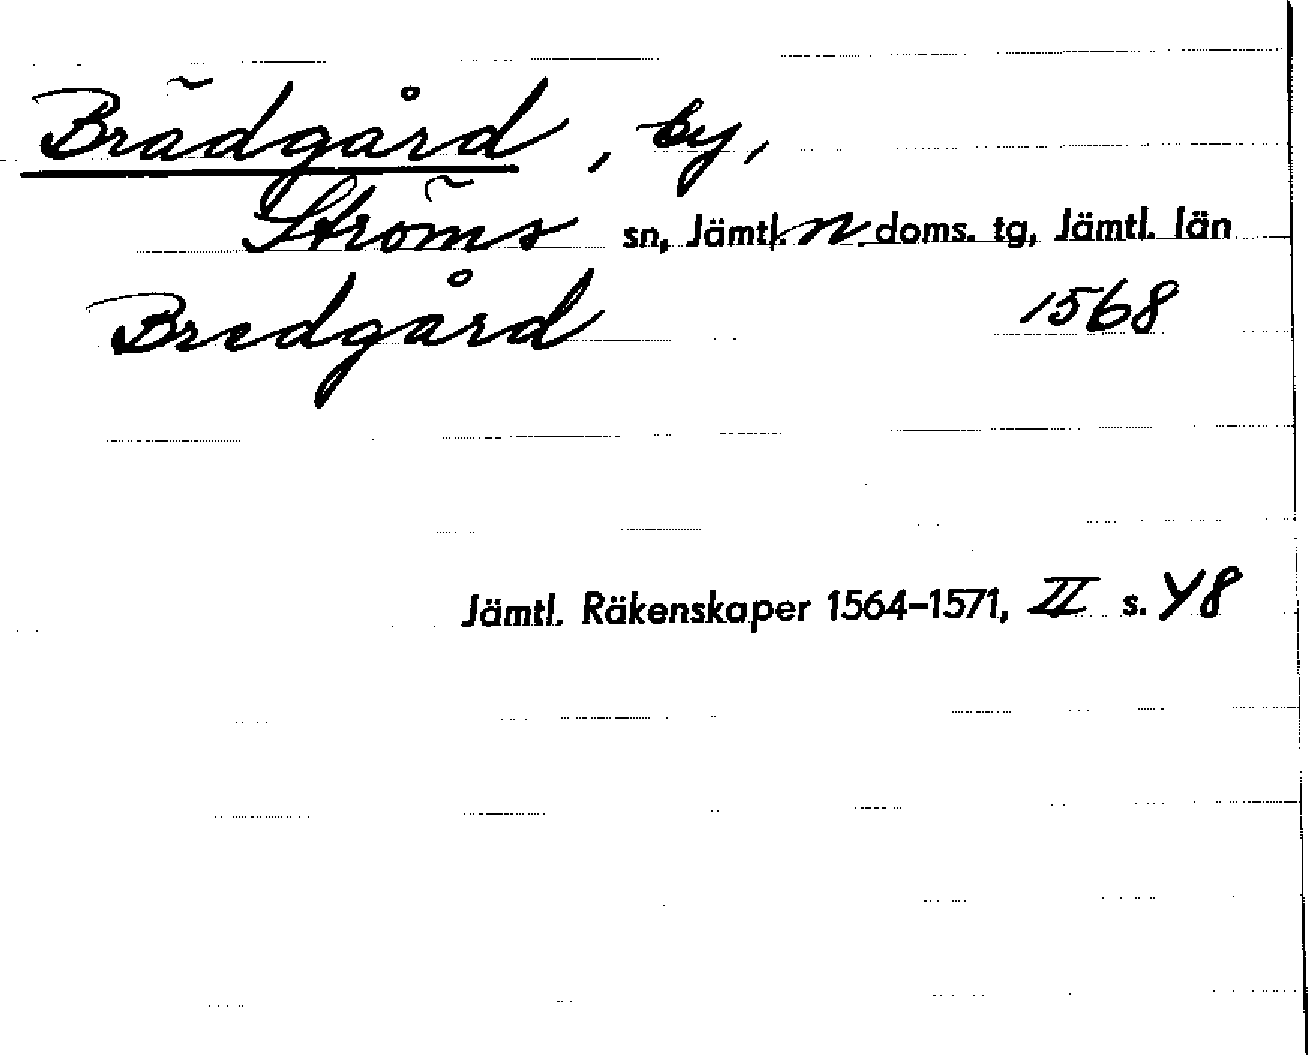 Brädgård, by,
Ströms sn, Jämtl. n. doms. tg, Jämtl. län
Bredgård 1568
Jämtl. Räkenskaper 1564-1571, II s. 48